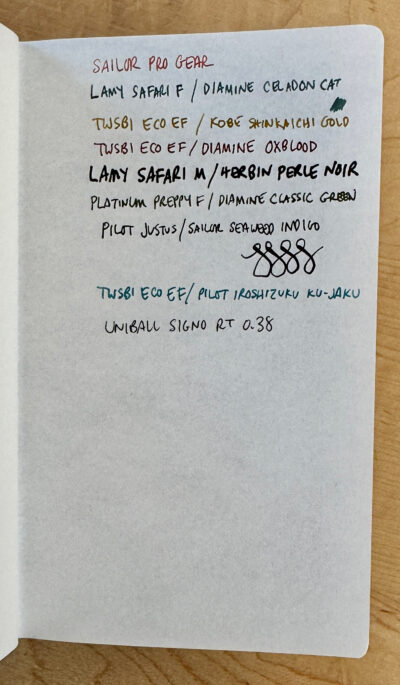 SAILOR PRO GEAR
LAMY SAFARI F / DIAMINE CELADON CAT
TWSBI ECO EF / KOBE SHINKAICHI GOLD
TWSBI ECO EF / DIAMINE OXBLOOD
LAMY SAFARI M / HERBIN PERLE NOIR
PLATINUM PREPPY F / DIAMINE CLASSIC GREEN
PILOT JUSTUS / SAILOR SEAWEED INDIGO
TWSBI ECO EF / PILOT IROSHIZUKU KU-JAKU
UNIBALL SIGNO RT 0.38